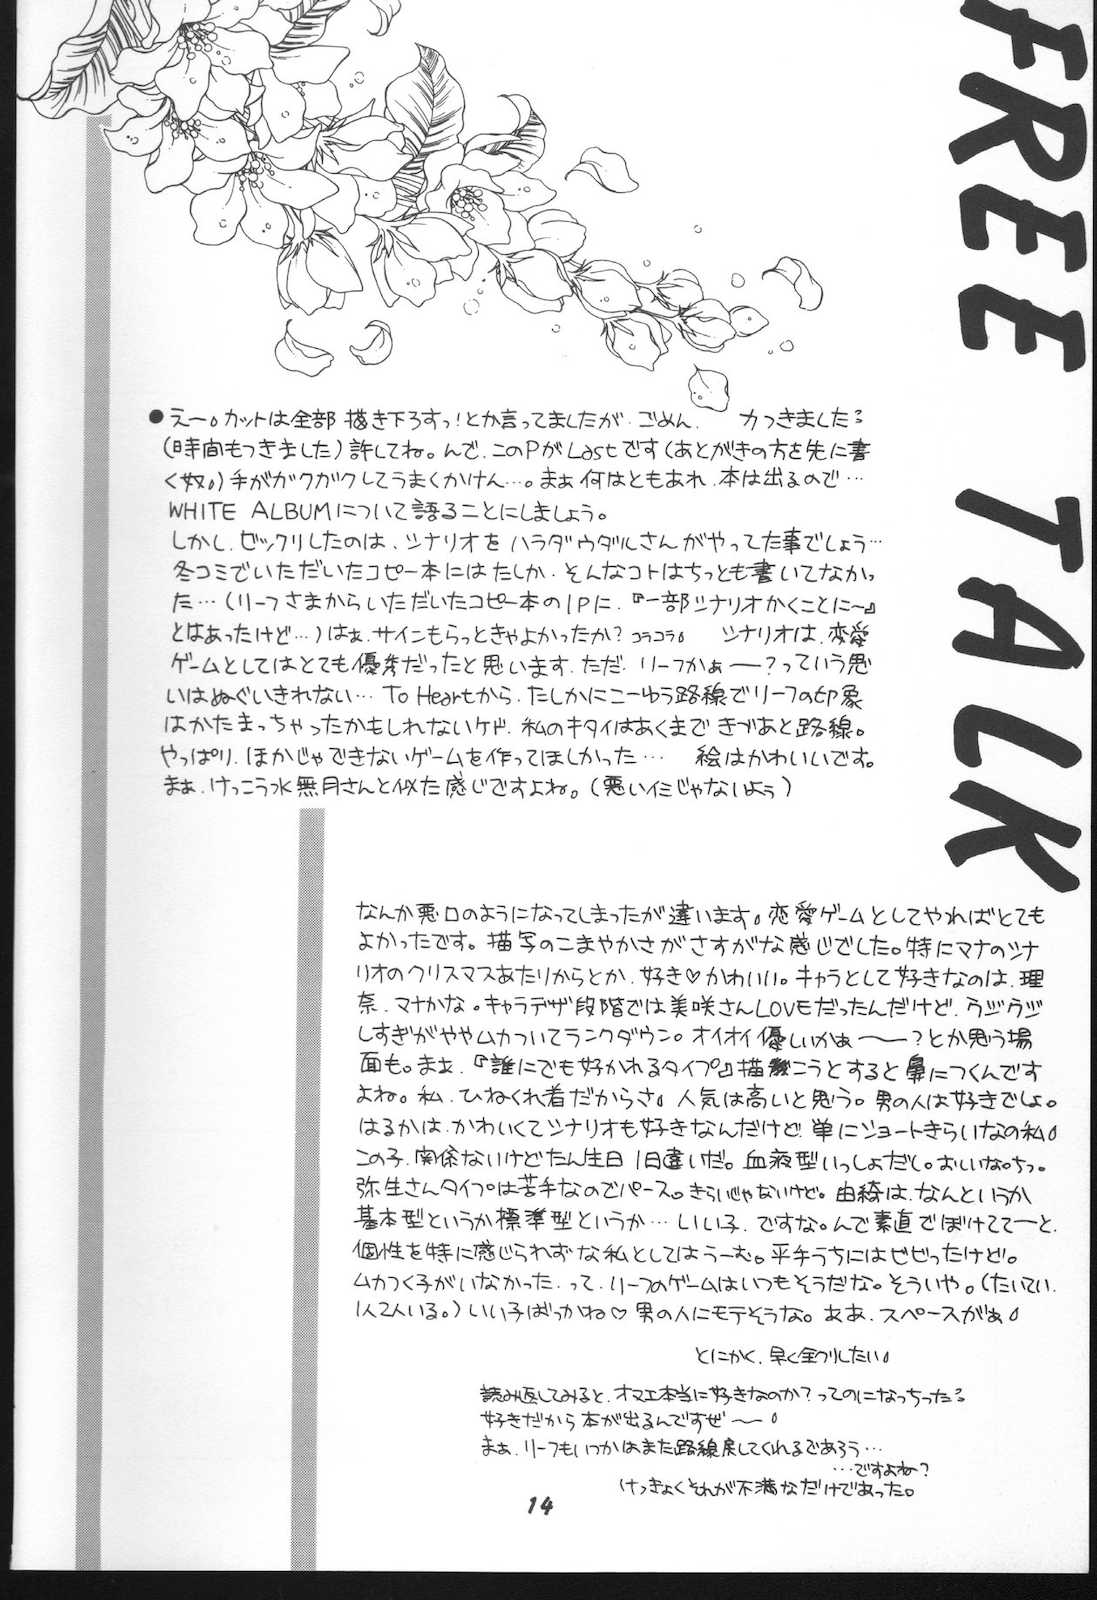 FREE TALK
●えー。カットは全部 描き下ろすっ!とか言ってましたが、ごめん、 力つきました
(時間もつきました)許してね。んで、このPがLastです(あとがきの方を先に書
く奴。)手がガクガクしてうまくかけん…。まぁ何はともあれ、本は出るので…
WHITE ALBUMについて語ることにしましょう。
しかし、ビックリしたのは、シナリオを ハラダウダルさんがやってた事でしょう…
冬コミでいただいたコピー本にはたしか、そんなコトはちっとも書いてなかっ
た…(リーフさまからいただいたコピー本の1Pに、『一部シナリオかくことに〜』
とはあったけど…)はぁ、サインもらっときゃよかったか? コラコラ。 シナリオは、恋愛
ゲームとしてはとても優秀だったと思います、ただ、リーフかぁー?っていう思
いはぬぐいきれない… To Heartから、たしかにこーゆう路線でリーフの印象
はかたまっちゃったかもしれないケド、私のキタイはあくまで きづあと路線。
やっぱり、ほかじゃできないゲームを作ってほしかった… 絵はかわいいです。
まぁ、けっこう水無月さんと似た感じですよね。(悪いイミじゃないよぅ)
なんか悪口のようになってしまったが違います。恋愛ゲームとしてやればとても
よかったです。描写のこまやかさがさすがな感じでした。特にマナのシナ
リオのクリスマスあたりからとか、好き♡かわいい。キャラとして好きなのは、理
奈、マナかな。キャラデザ段階では美咲さんLOVEだったんだけど、ウジウジ
しすぎがややムカついてランクダウン。オイオイ優しいかぁー?とか思う場
面も。まぁ、『誰にでも好かれるタイプ』描こうとすると鼻につくんです
よね。私、ひねくれ者だからさ。人気は高いと思う。男の人は好きでしょ。
はるかは、かわいくてシナリオも好きなんだけど、単にショートきらいなの私。
この子、関係ないけどたん生日1日違いだ。血液型いっしょだし。おしいなっちっ。
弥生さんタイプは苦手なのでパース。きらいじゃないけど。由綺は、なんというか
基本型というか標準型というか…いい子、ですな。んで素直でぼけててーと、
個性を特に感じられずな私としてはうーむ。平手うちにはビビったけど。
ムカつく子がいなかった、って、リーフのゲームはいつもそうだな。そういや。(たいてい、
1人2人いる。)いい子ばっかね♡男の人にモテそうな。ああ、スペースがぁ
とにかく、早く全クリしたい。
読み返してみると、オマエ本当に好きなのか?ってのになっちった
好きだから本が出るんですぜ〜
まぁ、リーフもいつかはまた路線戻してくれるであろう…
…ですよね?
けっきょくそれが不満なだけであった。
14